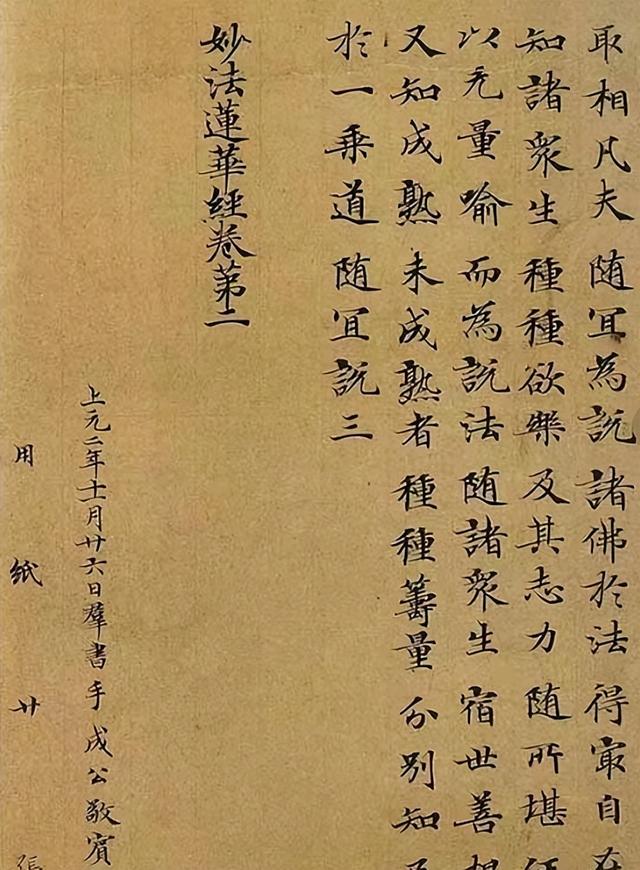 取相凡夫随冝為說諸佛於法得冣自在
知諸衆生種種欲樂及其志力随所堪任
以无量喻而為說法随諸衆生宿世善根
又知成熟未成熟者種種籌量分别知已
於一乗道随冝說三
妙法蓮華經卷第二
上元二年十一月廿六日羣書手成公敬賓
用紙廿張